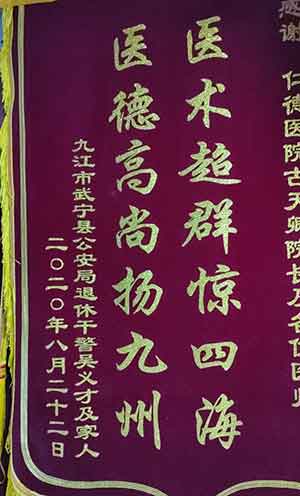 感谢
仁德医院古天卿院长及各位医师
医术超群惊四海
医德高尚扬九州
九江市武宁县公安局退休干警吴义才及家人
二〇二〇年八月二十二日